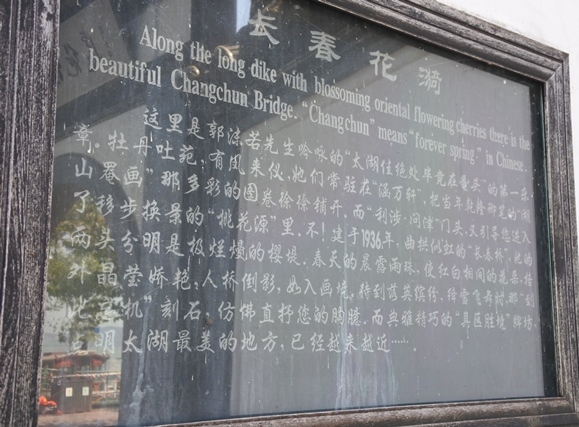 长春花漪
Along the long dike with blossoming oriental flowering cherries there is the
beautiful Changchun Bridge. "Changchun" means "forever spring" in Chinese.
这里是郭沫若先生吟咏的"太湖佳绝处, 毕竟在鼋头"的第一乐
章, 牡丹吐苑, 有凤来仪, 她们常驻在"涵万轩", 把当年乾隆御笔的"湖
山罨画"那多彩的图卷徐徐铺开, 而"利涉·问津"门头, 又引导您进入
了移步换景的"桃花源"里, 不! 建于1936年、曲拱似虹的"长春桥", 她的
两头分明是极烂熳的樱堤, 春天的晨露雨珠, 使红白相间的花朵, 格
外晶莹娇艳, 人桥倒影, 如入画境, 待到落英缤纷, 绛雪飞舞时, 那"别
此 机"刻石, 仿佛直抒您的胸臆, 而典雅精巧的"具区胜境"牌坊,
明太湖最美的地方, 已经越来越近……